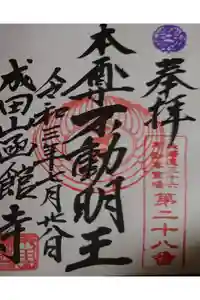 奉拝
第二十八番
本尊不動明王
令和三年十一月廿八日
成田山函館寺